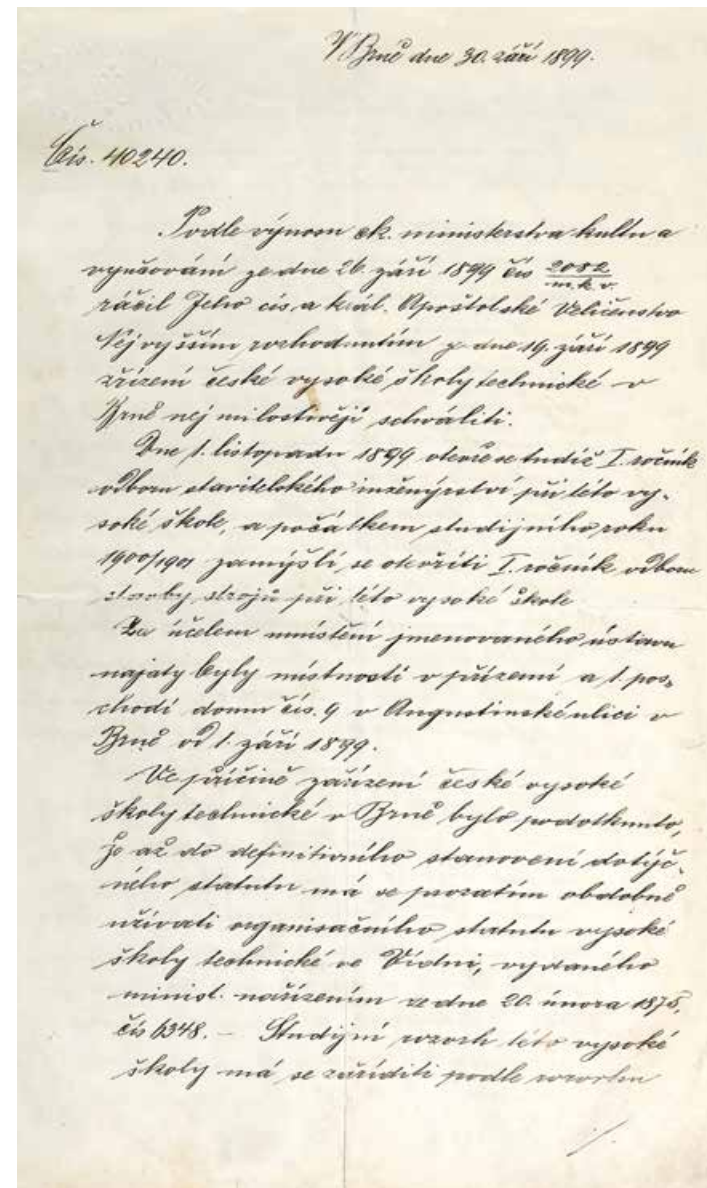 V Brně dne 30. září 1899.
Čís. 40240.
Podle výnosu ck. ministerstva kultu a
vyučování ze dne 26. září 1899 čís 2082/m.k.v.
ráčil Jeho cís. a král. Apoštolské Veličenstvo
Nejvyšším rozhodnutím ze dne 19. září 1899
zřízení české vysoké školy technické v
Brně nejmilostivěji schváliti.
Dne 1. listopadu 1899 otevře se tudíž I. ročník
odboru stavitelského inženýrství při této vy-
soké škole, a počátkem studijního roku
1900/1901 zamýšlí se otevříti I. ročník odboru
stavby strojů při této vysoké škole
Za účelem umístění jmenovaného ústavu
najaty byly místnosti v přízemí a 1. pos-
chodí domu čís. 9 v Augustinské ulici v
Brně od 1. září 1899.
Ve příčině zařízení české vysoké
školy technické v Brně bylo podotknuto,
že až do definitivního stanovení dotyč-
ného statutu má se prozatím obdobně
užívati organisačního statutu vysoké
školy technické ve Vídni, vydaného
minist. nařízením ze dne 20. února 1875,
čís 6348. – Studijní rozvrh této vysoké
školy má se zaříditi podle rozvrhu
./.